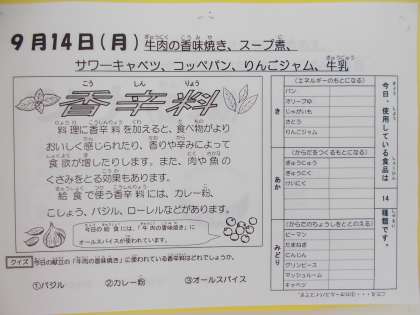 9月14日(月) 牛肉の香味焼き、スープ煮、
サワーキャベツ、コッペパン、りんごジャム、牛乳
香辛料
料理に香辛料を加えると、食べ物がより
おいしく感じられたり、香りや辛みによって
食欲が増したりします。また、肉や魚の
くさみをとる効果もあります。
給食で使う香辛料には、カレー粉、
こしょう、バジル、ローレルなどがあります。
今日の給食には、「牛肉の香味焼き」に
オールスパイスが使われています。
クイズ 今日の献立の「牛肉の香味焼き」に使われている香辛料はどれでしょうか。
①バジル ②カレー粉 ③オールスパイス
今日、使用している食品は 14 種類です。
き
(エネルギーのもとになる)
パン
オリーブゆ
じゃがいも
さとう
りんごジャム
あか
(からだをつくるもとになる)
ぎゅうにゅう
ぎゅうにく
みどり
(からだのちょうしをととのえる)
ピーマン
たまねぎ
にんじん
グリンピース
マッシュルーム
キャベツ